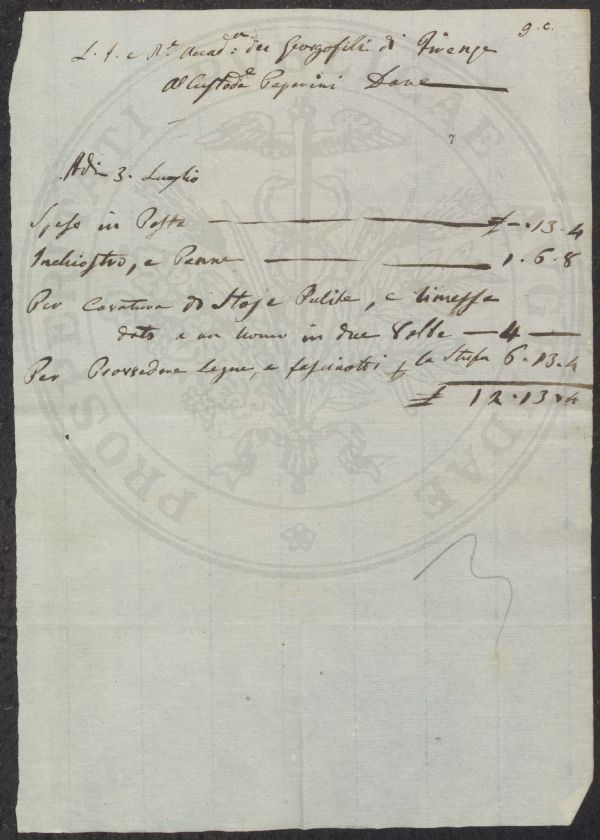 9. c.
L. I. e R.e Accad.a dei Georgofili di Firenze
Al Custode Paperini Dare
Adi 3. Luglio
Spese in Posta £ -. 13. 4
Inchiostro, e Penne 1. 6. 8
Per di Stoje Pulite, e rimesse
dato a un uomo in due Volte 4
Per Provvedere Legne, e fascinotti p la Stufa 6. 13. 4
£ 12. 13. 4
PROSPERITATI PUBLICAE AUGENDAE